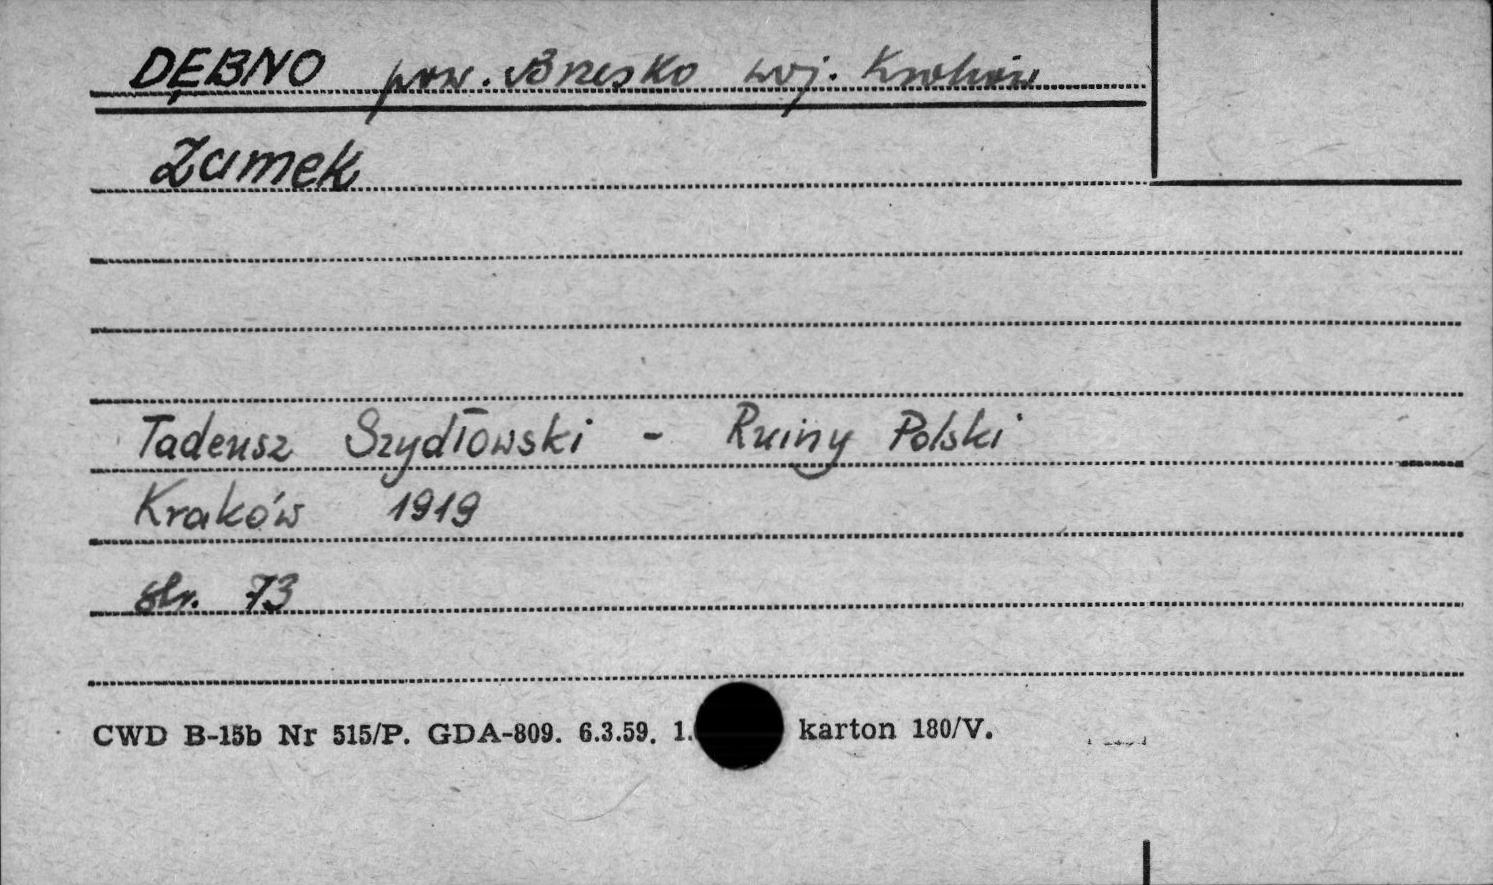 DĘBNO pow. Brzesko woj. Kraków
Zamek
Tadeusz Szydłowski - Ruiny Polski
Kraków 1919
str. 73
CWD B-15b Nr 515/P. GDA-809. 6.3.59. 1. karton 180/V.